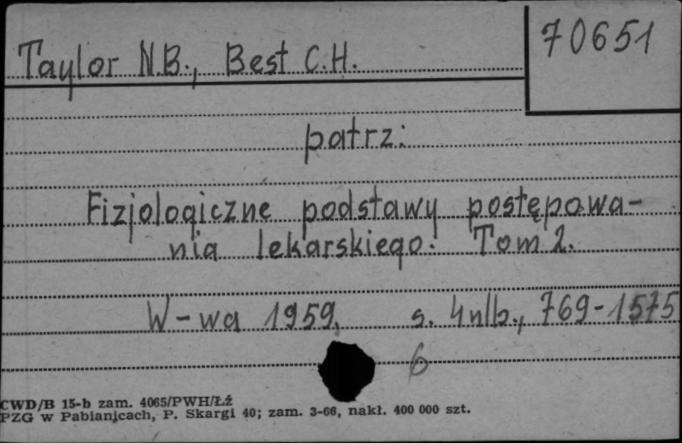 70651
Taylor N.B., Best C.H.
patrz:
Fizjologiczne podstawy postępowa-
nia lekarskiego. Tom 2.
W-wa 1959, s. 4nlb., 769-1575
6
CWD/B 15-b zam. 4065/PWH/ŁŹ
PZG w Pabianicach, P. Skargi 40; zam. 3-66, nakł. 400 000 szt.